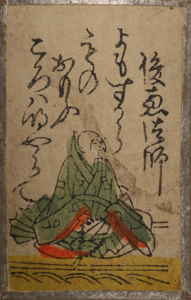 俊恵法師
よもすから
もの
おもふ
ころハ明やらて